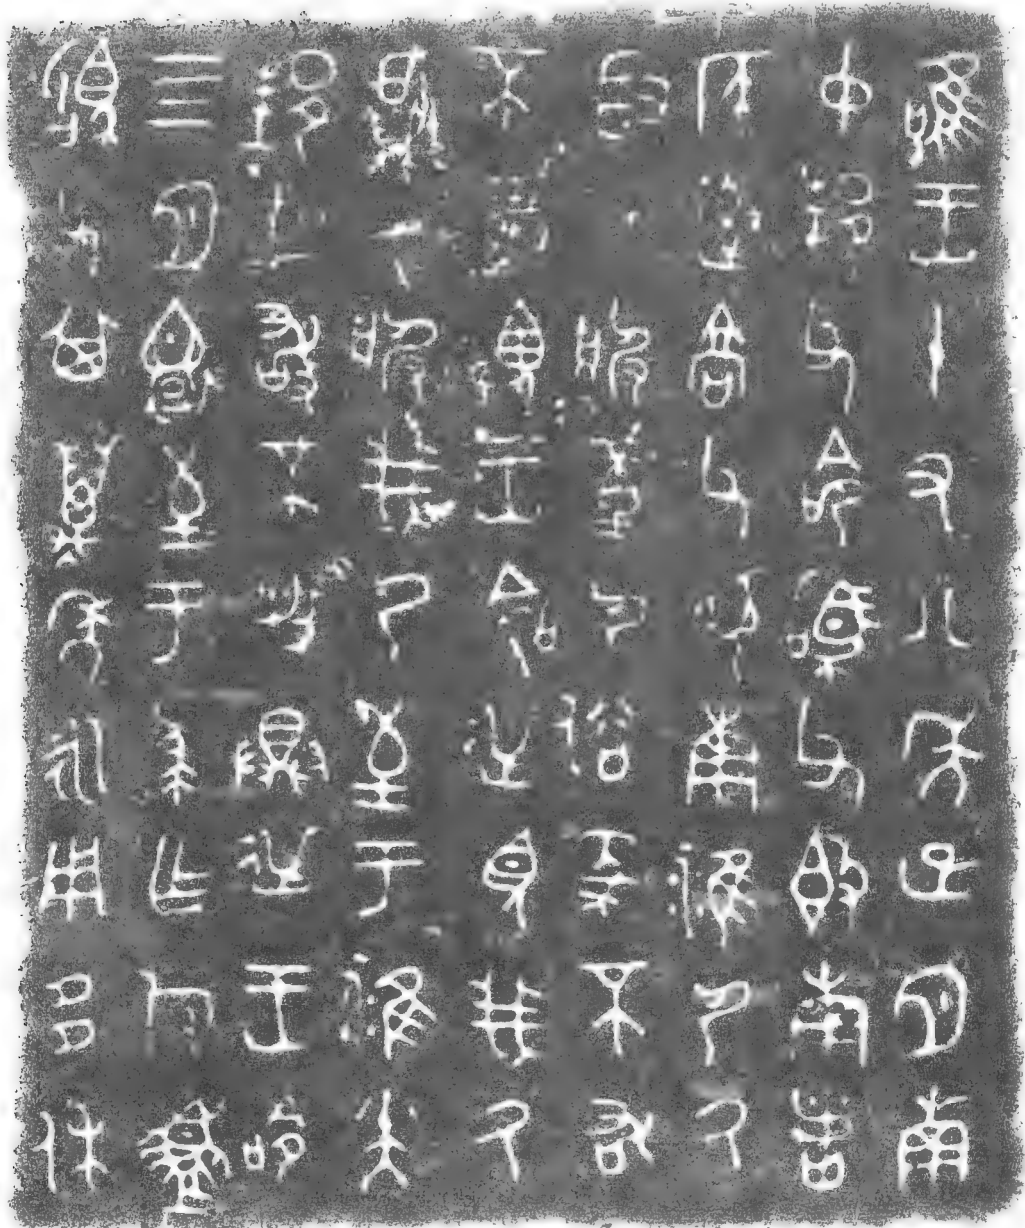 唯王十又八年正月南
中邦父命駒父即南者
侯率高父見南淮夷厥
取厥服堇夷俗㒸不敢
不敬畏王命逆見我厥
獻厥服我乃至于淮小大
邦亡敢不具逆王命
四月還至于蔡乍旅盨
駒父其萬年永用多休